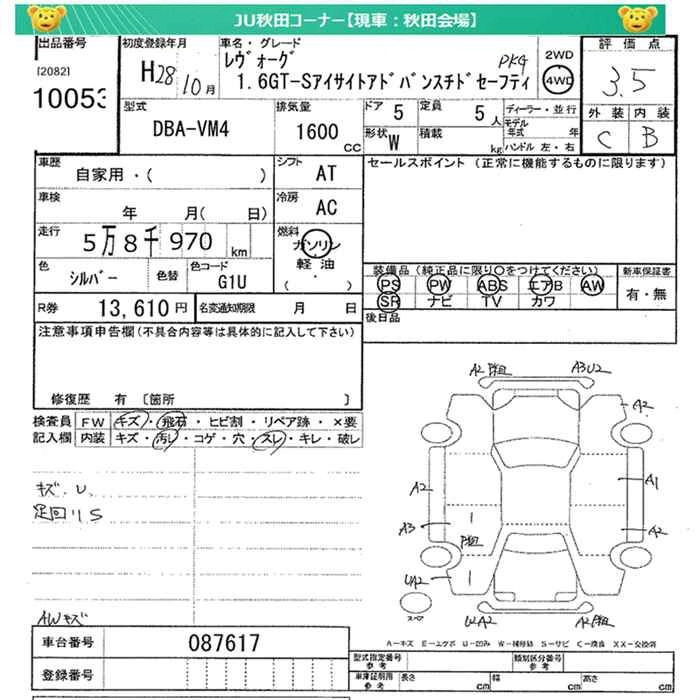 JU秋田コーナー【現車：秋田会場】
出品番号
[2082]
10053
初度登録年月
H28 10月
車名・グレード
レヴォーグ PKG
1.6GT-Sアイサイトアドバンスチドセーフティ
2WD
4WD
評価点
3.5
外装 内装
C B
型式
DBA-VM4
排気量
1600 CC
ドア 5
定員 5人
形状 W
積載 kg
ディーラー・並行
モデル年式 年
ハンドル 左・右
車歴
自家用・( )
シフト AT
セールスポイント (正常に機能するものに限ります)
車検
年 月( 日)
冷房 AC
走行
5万8千970 km
燃料
ガソリン
軽油
( ・ )
色
シルバー
色替
色コード
G1U
装備品 (純正品に限り○をつけてください)
PS PW ABS エアB AW
SR ナビ TV カワ
新車保証書
有・無
R券 13,610円
名変通知期限 月 日
後日品
注意事項申告欄(不具合内容等は具体的に記入して下さい)
修復歴 有 〔箇所 〕
検査員 FW キズ・飛石・ヒビ割・リペア跡・×要
記入欄 内装 キズ・汚レ・コゲ・穴・スレ・キレ・破レ
キズ.U
足回リS
AWキズ
A2
A3U2
A2
A2
A1
A3
A2
UA2
スペア
A-キズ E-エクボ U-凹み W-補修跡 S-サビ C-腐食 XX-交換済
車台番号 087617
登録番号
型式指定番号 参考
類別区分番号 参考
車庫証明用 参考 長さ cm 幅 cm 高さ cm